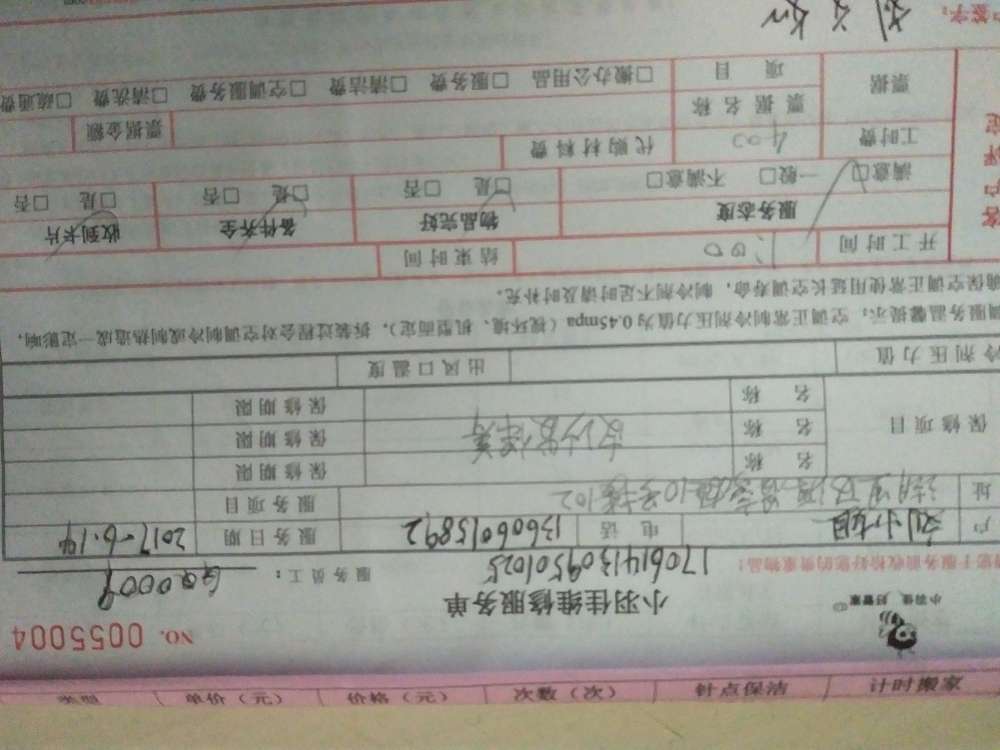 计时搬家 针点保洁 次数（次） 价格（元） 单价（元） 类型
小羽佳 好管家
NO. 0055004
小羽佳维修服务单
您于服务前收检您的贵重物品！ 1706141309501025 服务员工： GQ0009
户 刘小姐 电话 13606015892 服务日期 2017-6.14
址 10号楼102 服务项目
保修项目 名称 保修期限
名称 保修期限
名称 保修期限
冷剂压力值 出风口温度
调服务温馨提示：空调正常制冷剂压力值为0.45mpa（视环境、机型而定），拆装过程会对空调制冷或制热造成一定影响，
确保空调正常使用延长空调寿命，制冷剂不足时请及时补充。
开工时间 结束时间
客户评定
服务态度 物品完好 备件齐全 收到卡片
满意□ 一般□ 不满意□ □是 □否 □是 □否 □是 □否
工时费 400 代购材料费
票据 票据名称 票据金额
项目 □搬办公用品 □服务费 □清洁费 □空调服务费 □清洗费 □疏通费
户签字：